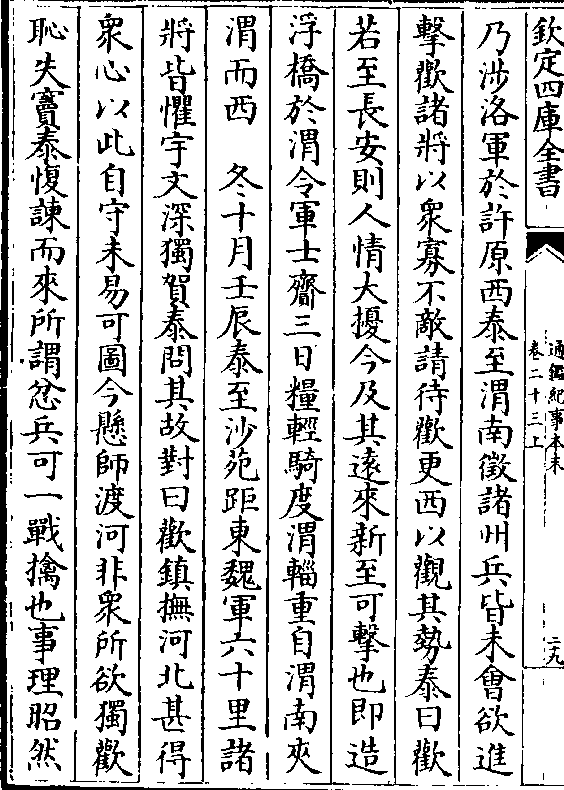 欽定四庫全書
通鑑紀事本末
卷二十三上
二九
乃涉洛軍於許原西泰至渭南徵諸州兵皆未會欲進
擊歡諸將以衆寡不敵請待歡更西以觀其勢泰曰歡
若至長安則人情大擾今及其遠來新至可擊也即造
浮橋於渭令軍士齎三日糧輕騎度渭輜重自渭南夾
渭而西　冬十月壬辰泰至沙苑距東魏軍六十里諸
將皆懼宇文深獨賀泰問其故對曰歡鎮撫河北甚得
衆心以此自守未易可圖今懸師渡河非衆所欲獨歡
恥失竇泰愎諫而來所謂忿兵可一戰擒也事理昭然